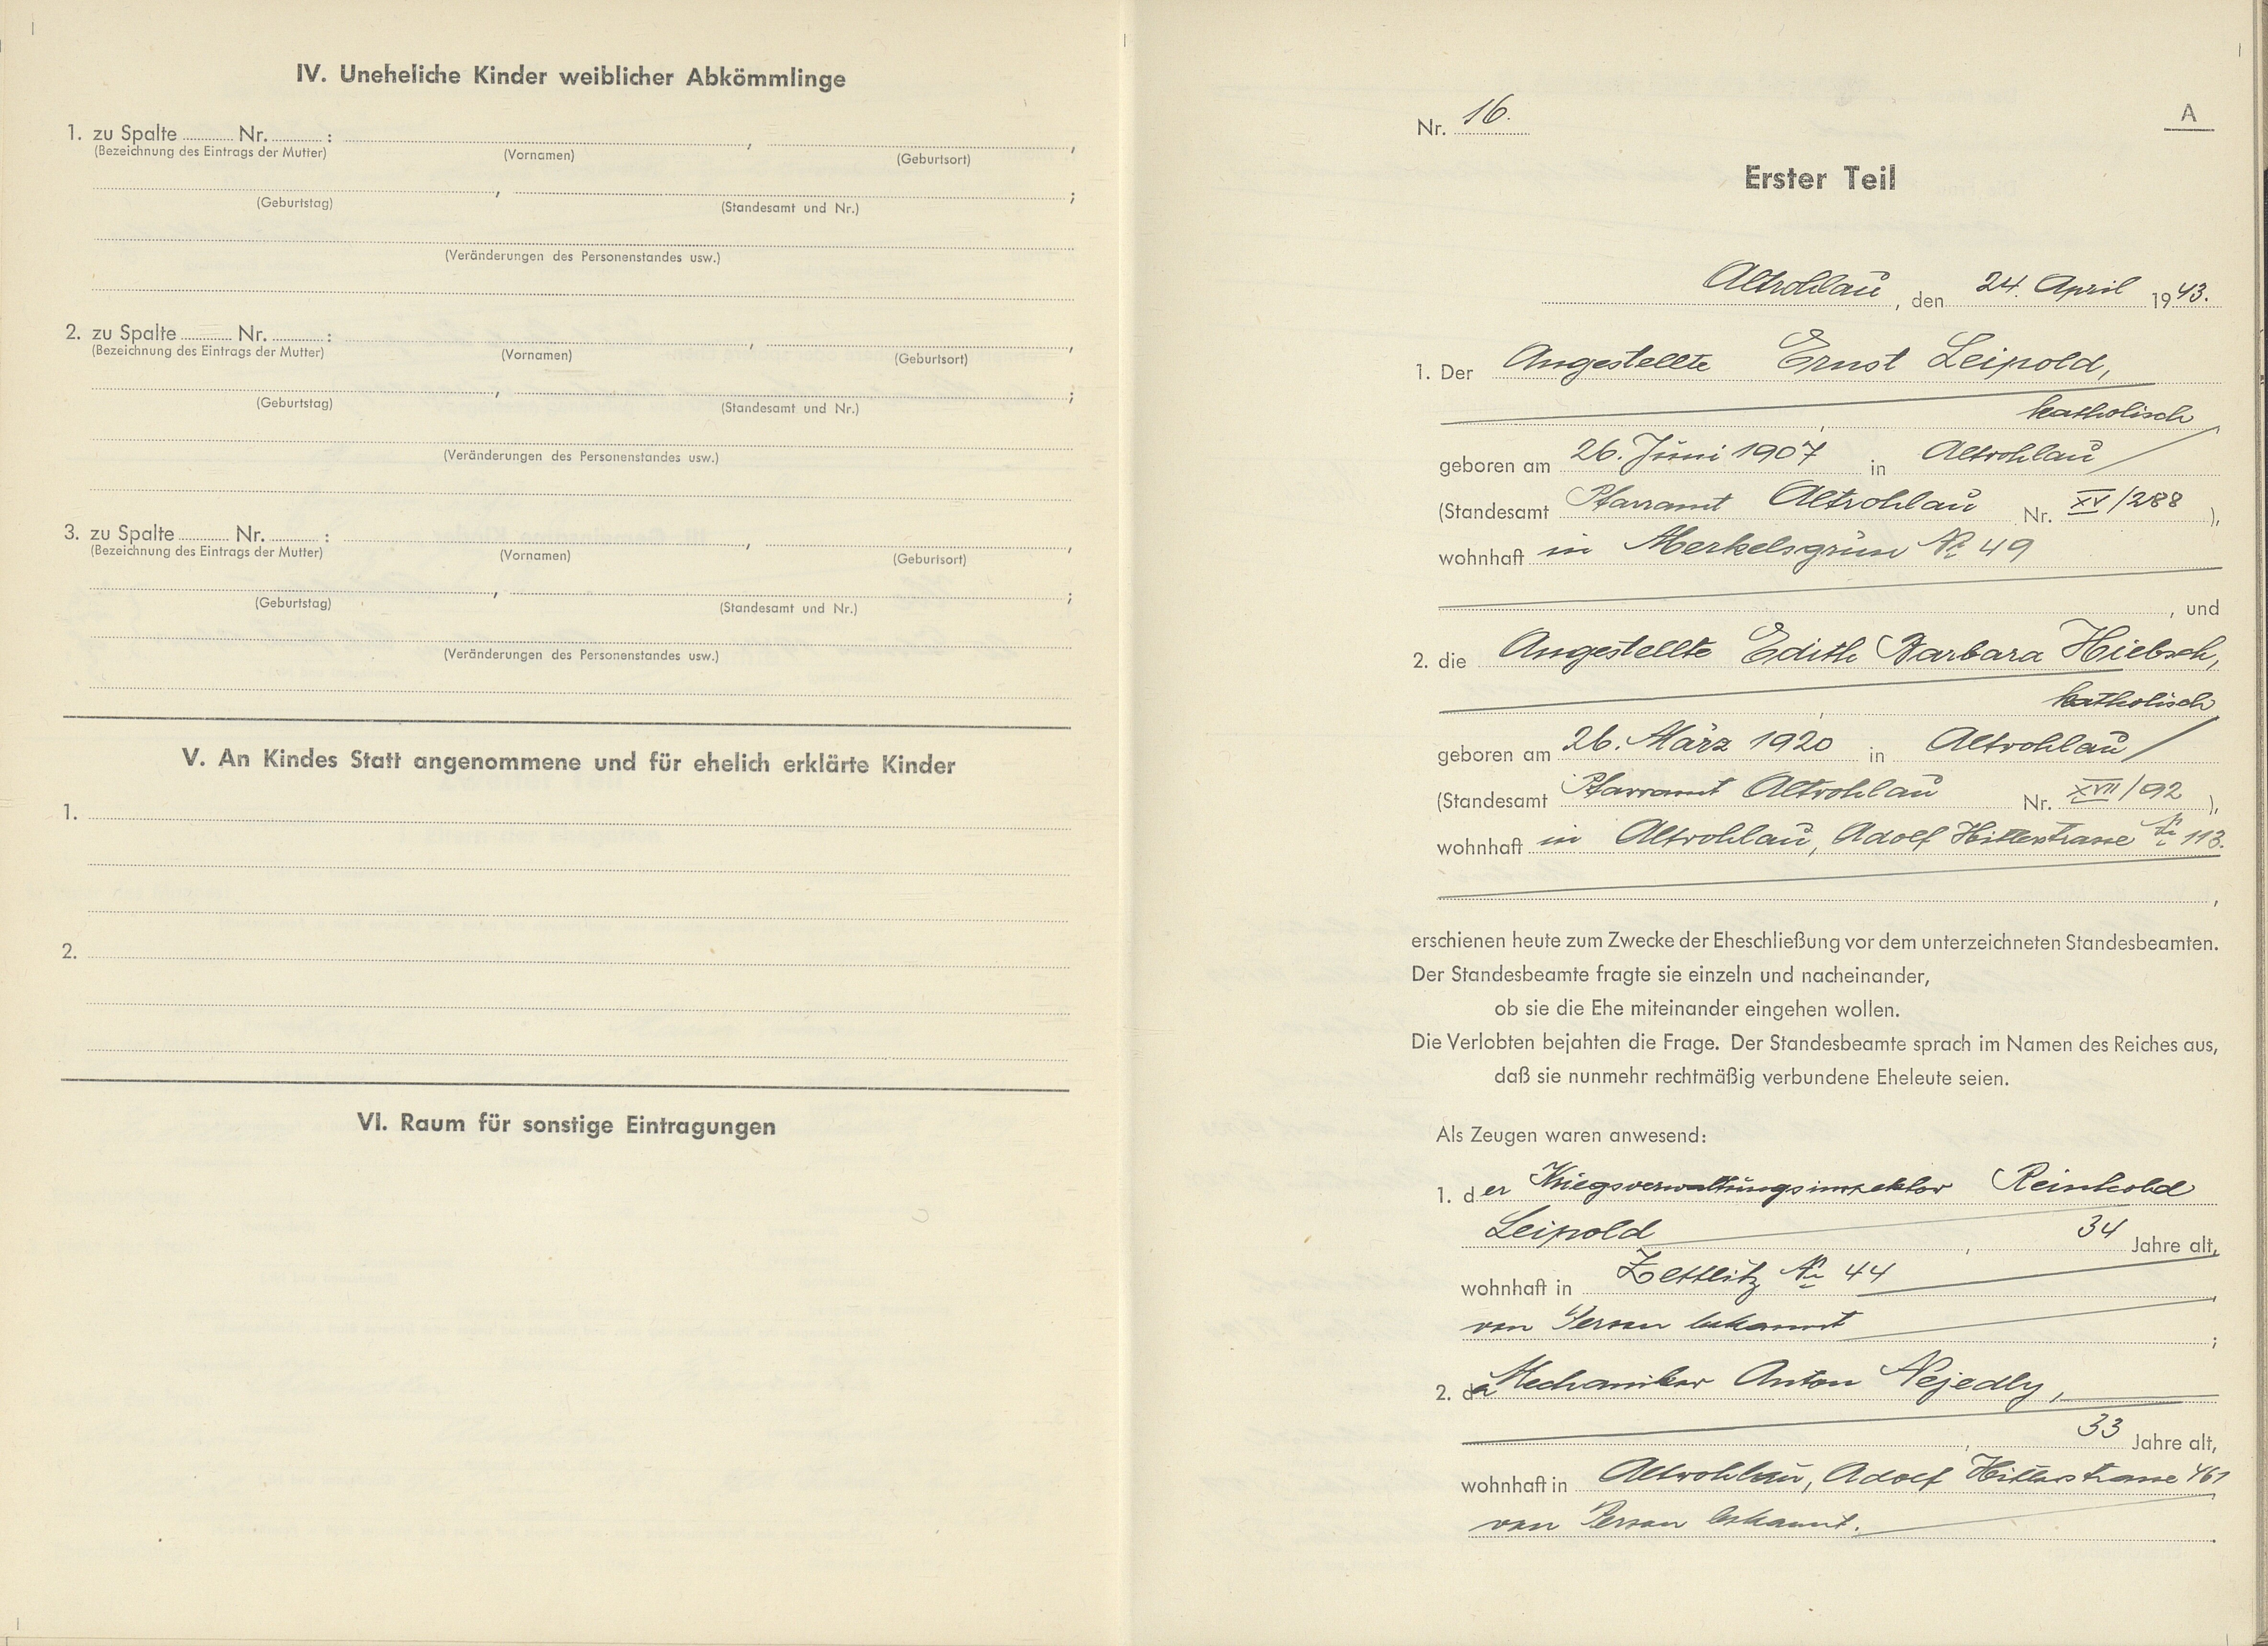 IV. Uneheliche Kinder weiblicher Abkömmlinge
1. zu Spalte ........ Nr. ........ :
(Bezeichnung des Eintrags der Mutter) (Vornamen) , (Geburtsort) ,
(Geburtstag) , (Standesamt und Nr.) ;
(Veränderungen des Personenstandes usw.)
2. zu Spalte ........ Nr. ........ :
(Bezeichnung des Eintrags der Mutter) (Vornamen) , (Geburtsort) ,
(Geburtstag) , (Standesamt und Nr.) ;
(Veränderungen des Personenstandes usw.)
3. zu Spalte ........ Nr. ........ :
(Bezeichnung des Eintrags der Mutter) (Vornamen) , (Geburtsort) ,
(Geburtstag) , (Standesamt und Nr.) ;
(Veränderungen des Personenstandes usw.)
V. An Kindes Statt angenommene und für ehelich erklärte Kinder
1.
2.
VI. Raum für sonstige Eintragungen
Nr. 16.
A
Erster Teil
Altrohlau, den 24. April 1943.
1. Der Angestellte Ernst Leipold,
, katholisch,
geboren am 26. Juni 1907 in Altrohlau
(Standesamt Pfarramt Altrohlau Nr. XV/288 ),
wohnhaft in Merkelsgrün No 49
, und
2. die Angestellte Edith Barbara Hiebsch,
, katholisch
geboren am 26. März 1920 in Altrohlau
(Standesamt Pfarramt Altrohlau Nr. XVII/92 ),
wohnhaft in Altrohlau, Adolf Hitlerstrasse No 113.
,
erschienen heute zum Zwecke der Eheschließung vor dem unterzeichneten Standesbeamten.
Der Standesbeamte fragte sie einzeln und nacheinander,
ob sie die Ehe miteinander eingehen wollen.
Die Verlobten bejahten die Frage. Der Standesbeamte sprach im Namen des Reiches aus,
daß sie nunmehr rechtmäßig verbundene Eheleute seien.
Als Zeugen waren anwesend:
1. der Kriegsverwaltungsinspektor Reinhold
Leipold , 34 Jahre alt,
wohnhaft in Zettlitz No 44 ,
von Person bekannt ;
2. der Mechaniker Anton Nejedly,
, 33 Jahre alt,
wohnhaft in Altrohlau, Adolf Hitlerstrasse 461
von Person bekannt.